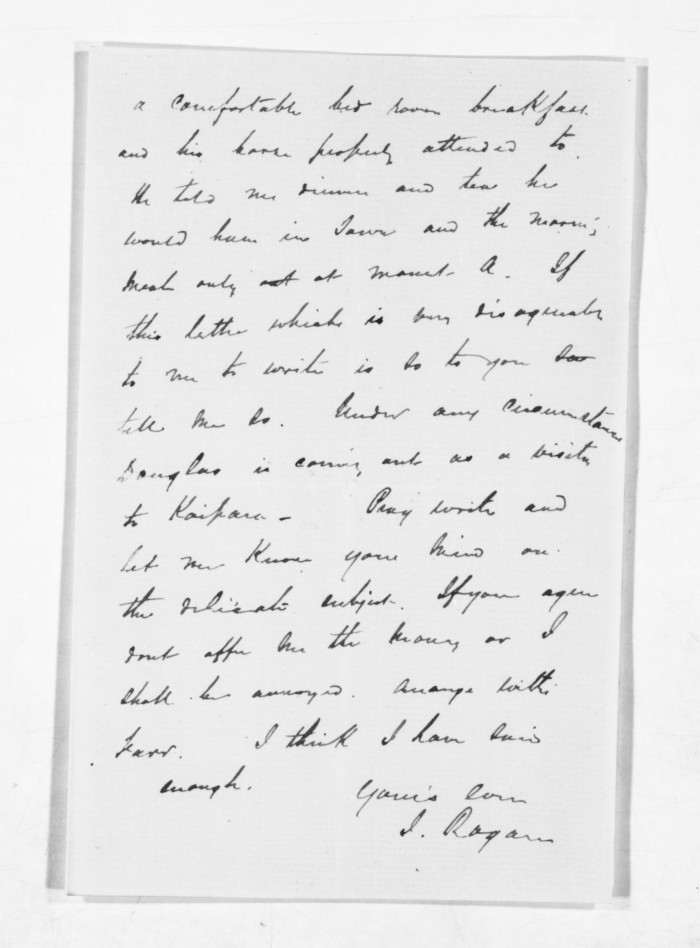 a comfortable bed room breakfast
and his horse properly attended to.
He told me dinner and tea he
would have in Town and the morning
meal only at mount A. If
this letter which is very disagreeable
to me to write is so to you
tell me so. Under any circumstances
Douglas is coming out as a visitor
to Kaipara - Pray write and
let me know your mind on
the delicate subject. If you agree
dont offer me the money or I
shall be annoyed. Arrange with
Farr. I think I have said
enough.
Yours Ever
J. Rogan